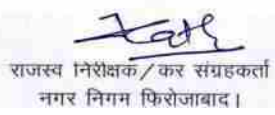 राजस्व निरीक्षक/कर संग्रहकर्ता
नगर निगम फिरोजाबाद।